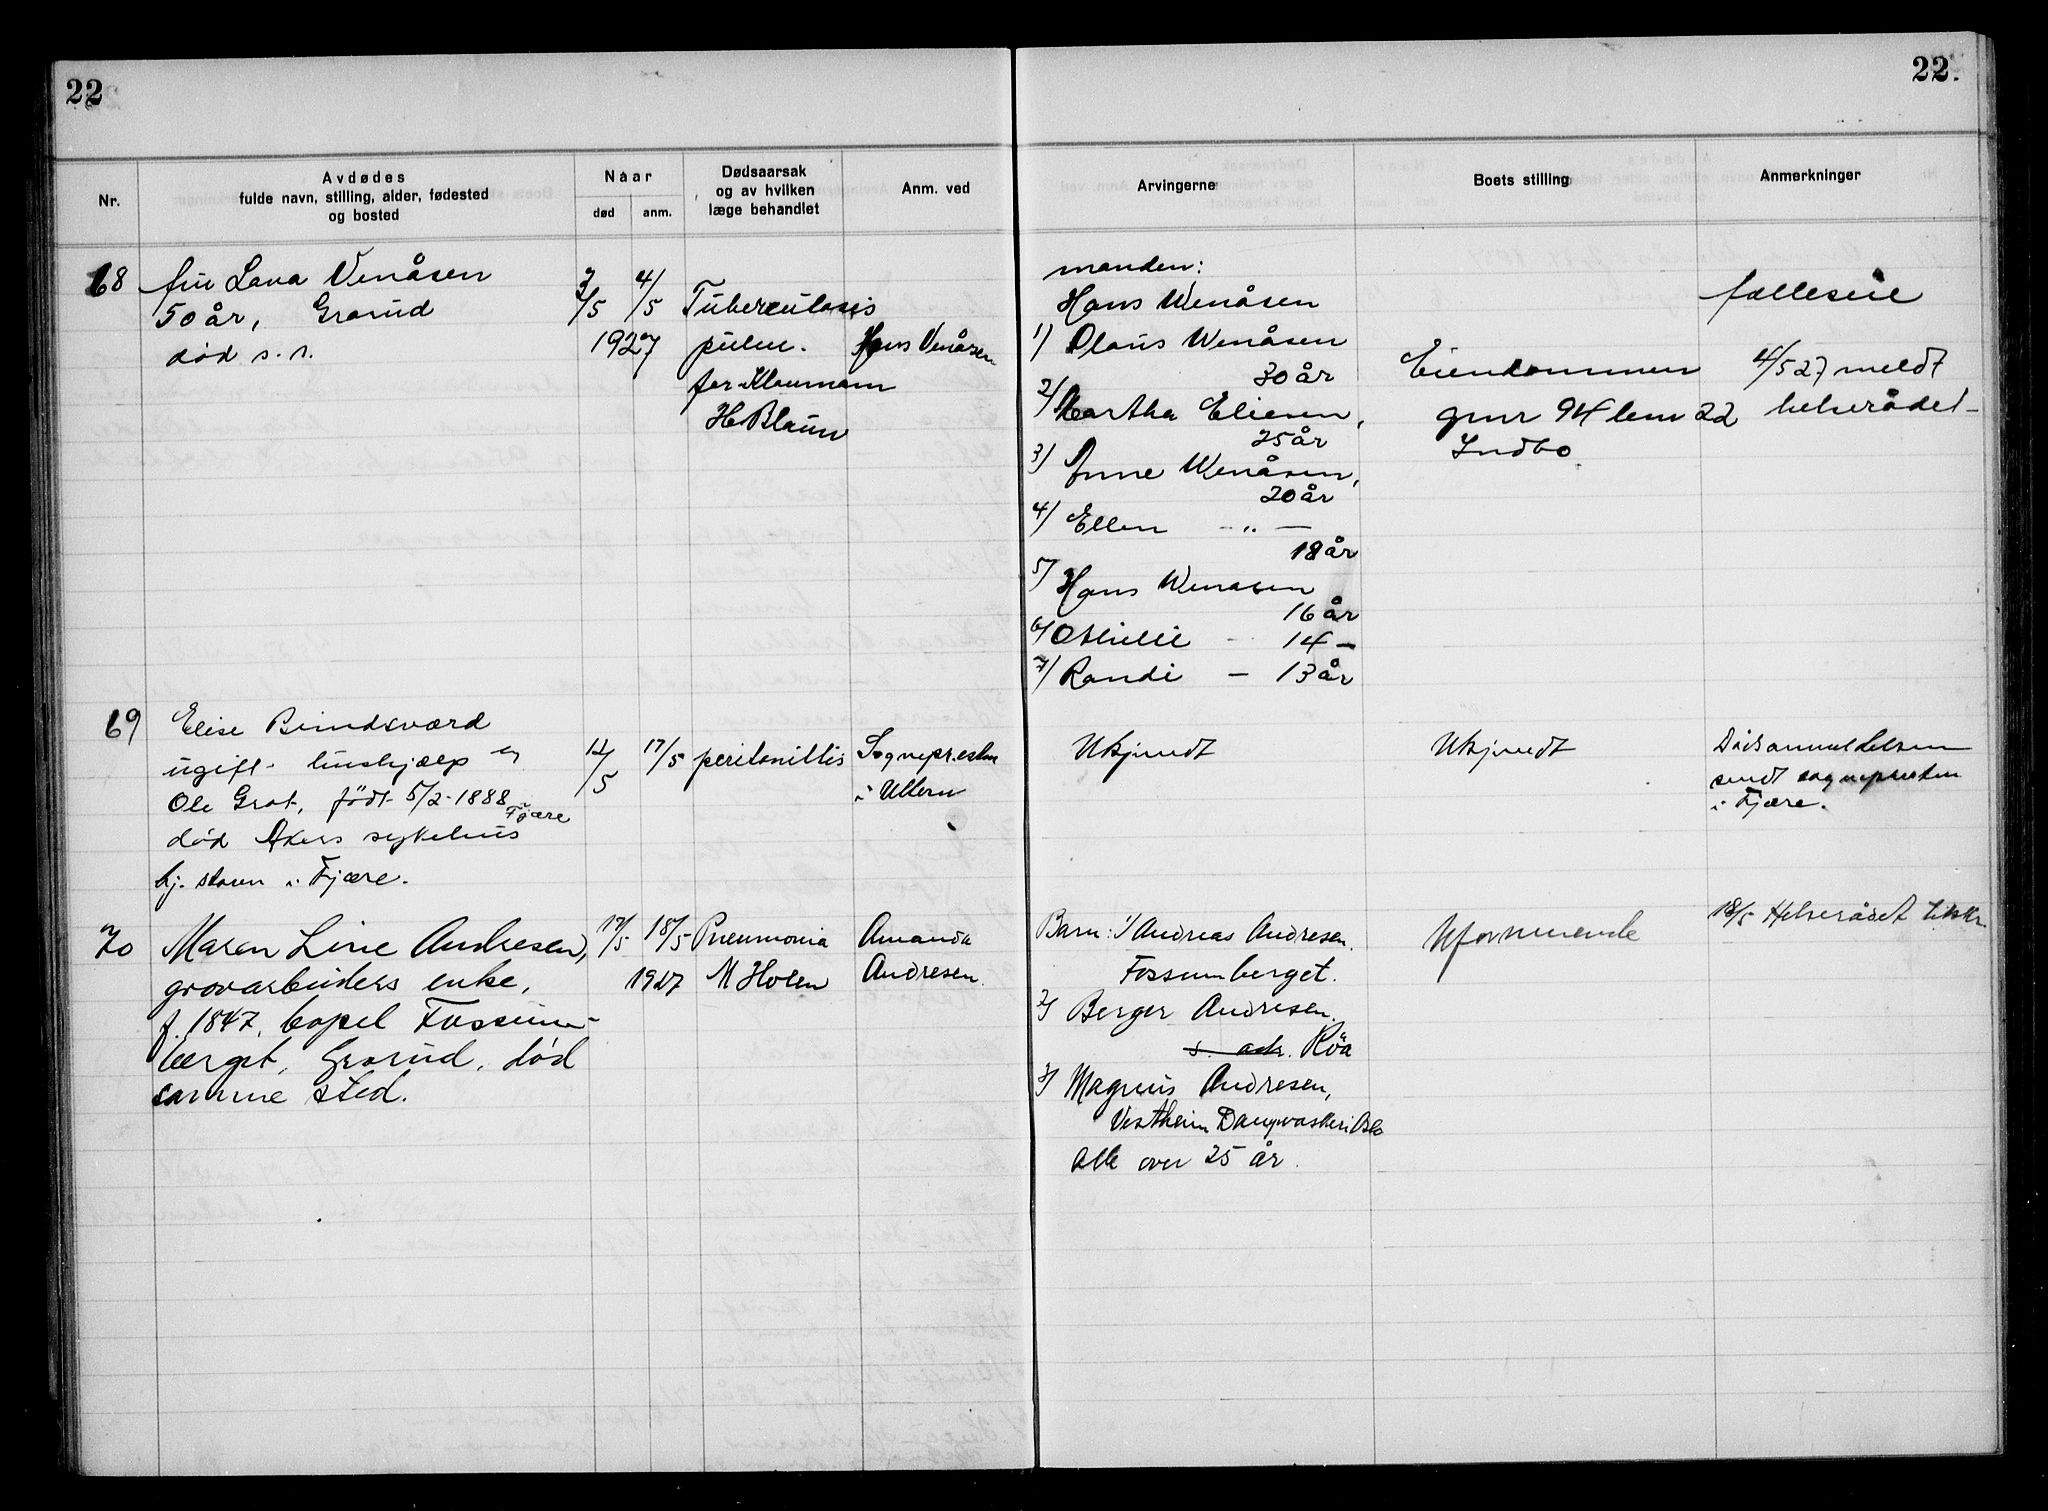 22
22.
Nr.
Avdødes
fulde navn, stilling, alder, fødested
og bosted
Naar
død
anm.
Dødsaarsak
og av hvilken
læge behandlet
Anm. ved
Arvingerne
Boets stilling
Anmerkninger
68
fru Lava Venåsen
50 år, Grorud
død s. s.
3/5
4/5
1927
Tuberculosis
pulm.
for Klaumann
Hans Venåsen
manden:
Hans Wenåsen
1) Olaus Wenåsen
30 år
2) Martha Eliesen,
25 år
3) Anne Wenåsen,
20 år
4) Ellen — " —
18 år
5) Hans Wenasen
16 år
6) Othilie - 14 —
7) Randi — 13 år
Eiendommen
gnr 94 bnr 22
Indbo
felleseie
4/5 27 meldt
helserådet
69
Elise Bindsværd
ugift hushjælp
Ole Grot, født 5/2-1888
i Fjære
død Akers sykehus
hj. staven i Fjære.
12/5
17/5
peritonittis
Sognepresten
i Ullern
Ukjendt
Ukjendt
Dødsanmeldelsen
sendt sognepresten
i Fjære.
70
Maren Line Andresen,
grovarbeiders enke,
f. 1847, bopel Fossum-
berget, Grorud, død
samme sted.
17/5
18/5
1927
Pneumonia
M Holen
Amanda
Andresen.
Barn: 1/ Andreas Andresen.
Fossumberget.
2) Berger Andresen.
s. adr. Röa
3) Magnus Andresen,
Vestheim Dampvaskeri Oslo
Alle over 25 år.
Uformuende
18/5 Helserådet tilskr.